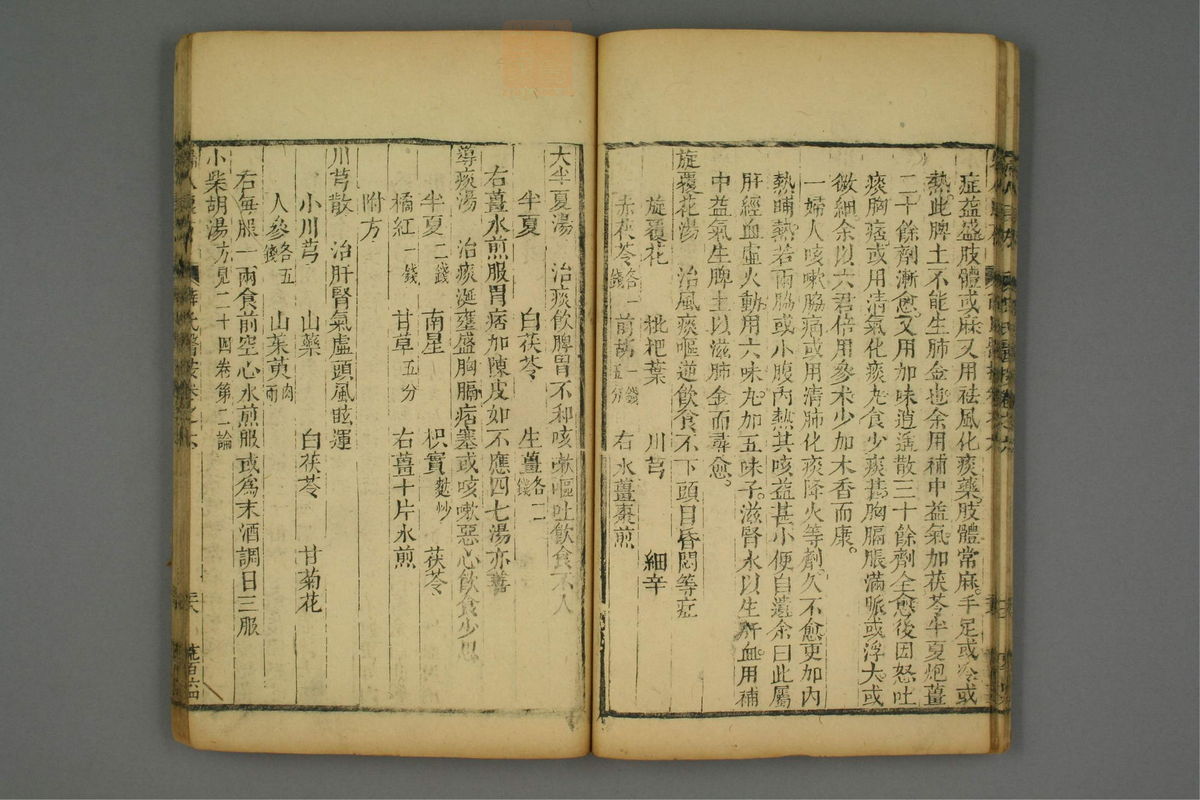 症益盛肢體或麻又用祛風化痰藥肢體常麻手足或冷或
熱此脾土不能生肺金也余用補中益氣加茯苓半夏炮薑
二十餘劑漸愈又用加味逍遙散三十餘劑全愈後因怒吐
痰胸痞或用清氣化痰丸食少痰甚胸膈脹滿脈或浮大或
微細余以六君倍用參朮少加木香而康
一婦人咳嗽脇痛或用清肺化痰降火等劑久不愈更加內
熱晡熱若兩脇或小腹內熱其咳益甚小便自遺余曰此屬
肝經血虛火動用六味丸加五味子滋腎水以生肝血用補
中益氣生脾土以滋肺金而尋愈
旋覆花湯 治風痰嘔逆飲食不下頭目昏悶等症
旋覆花 枇杷葉 川芎 細辛
赤茯苓各一錢 前胡一錢五分 右水薑棗煎
大半夏湯 治痰飲脾胃不和咳嗽嘔吐飲食不入
半夏 白茯苓 生薑各二錢
右薑水煎服胃痞加陳皮如不應四七湯亦善
導痰湯 治痰涎壅盛胸膈痞塞或咳嗽惡心飲食少思
半夏二錢 南星 枳實麩炒 茯苓
橘紅一錢 甘草五分 右薑十片水煎
附方
川芎散 治肝腎氣虛頭風眩運
小川芎 山藥 白茯苓 甘菊花
人參各五錢 山茱萸肉一兩
右每服一兩食前空心水煎服或為末酒調日三服
小柴胡湯方見二十四卷第二論